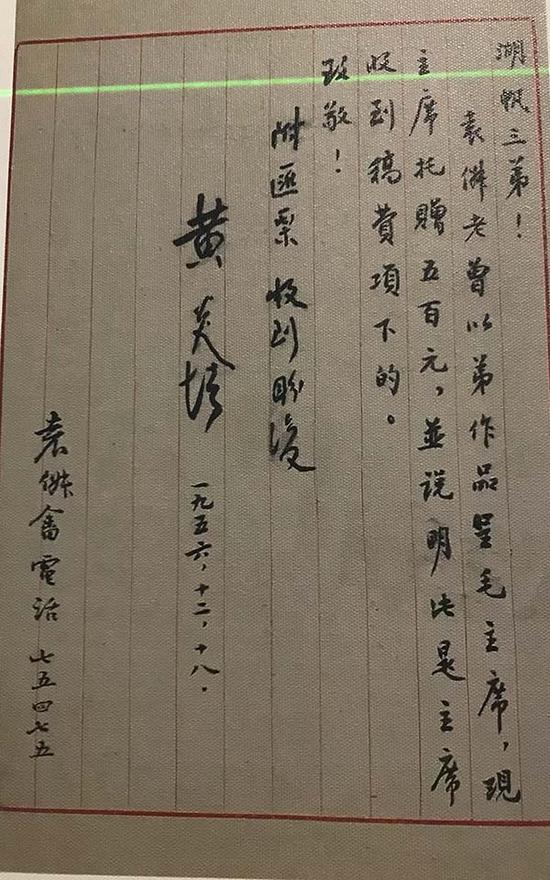 湖帆三弟！
袁傑老曾以弟作品呈毛主席，現
主席托贈五百元，並説明此是主席
收到稿費項下的。
致敬！
附匯票 收到盼復
黄炎培
一九五六，十二，十八．
袁 畬電话 七五四七五